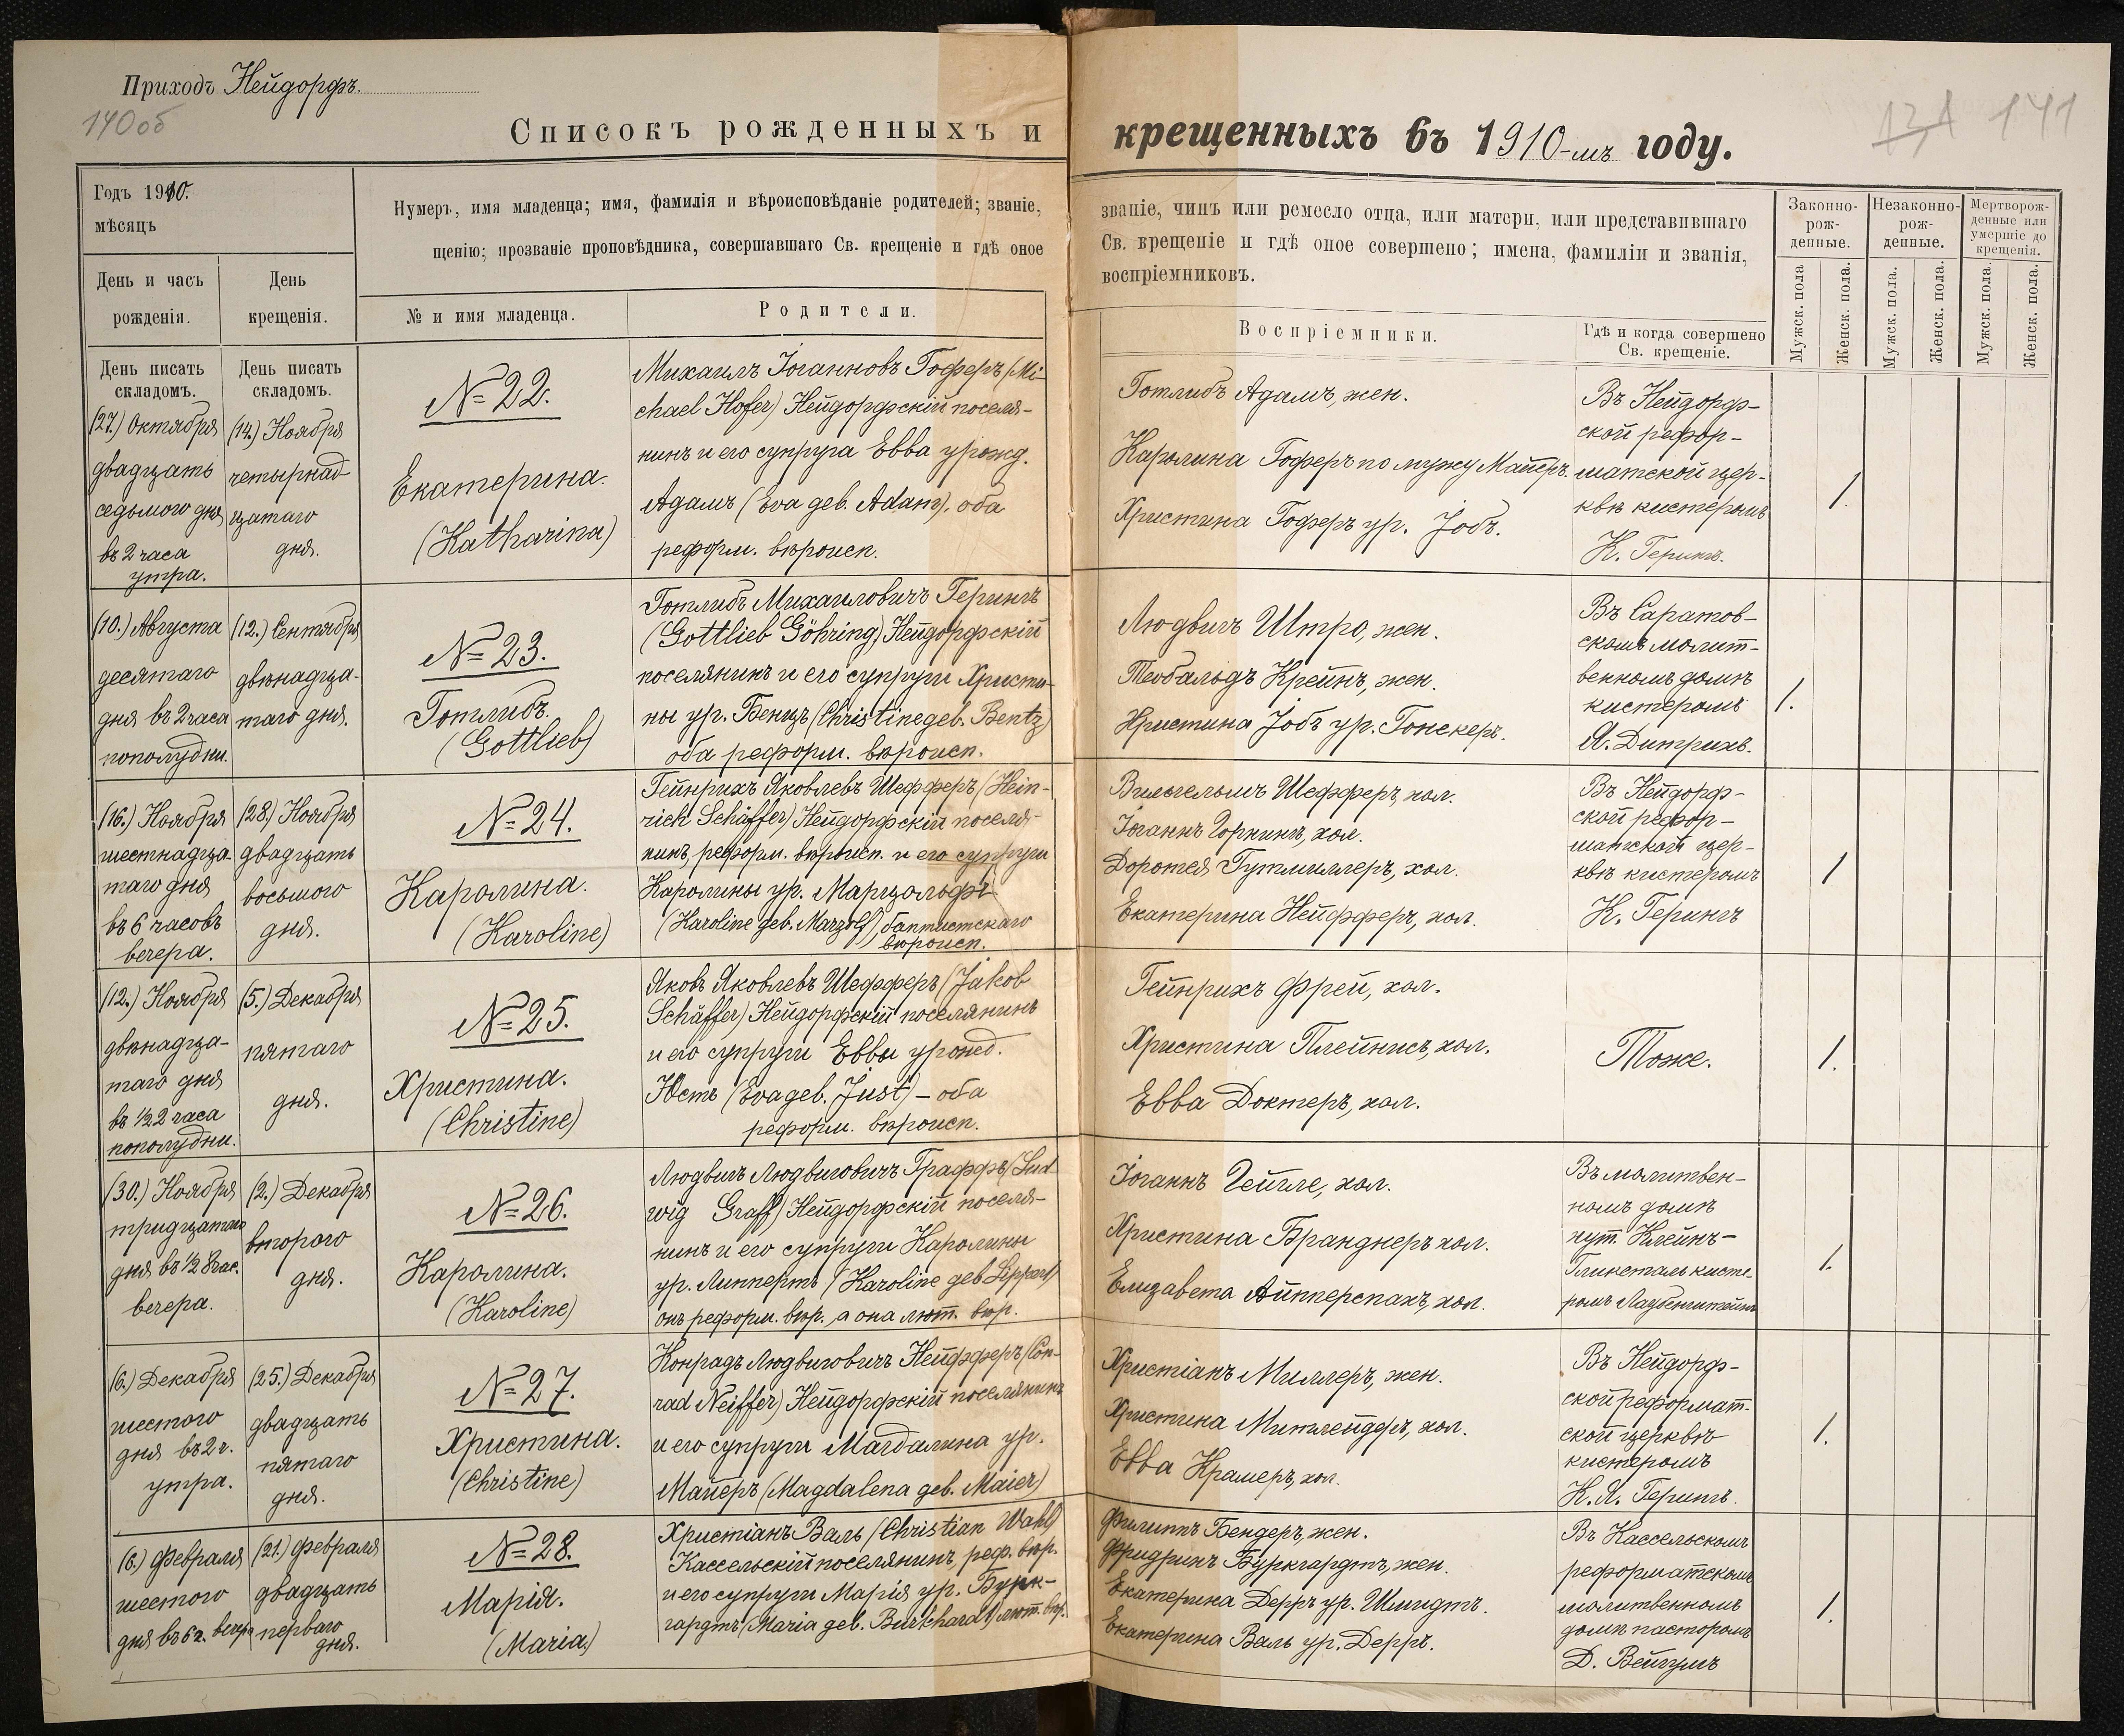 Приходъ Нейдорфъ.
140об
Списокъ рожденныхъ и крещенныхъ въ 1910-мъ году.
141
Годъ 1910.
мѣсяцъ
День и часъ
рожденія.
День
крещенія.
Нумеръ, имя младенца; имя, фамилія и вѣроисповѣданіе родителей; званіе,
щенію; прозваніе проповѣдника, совершавшаго Св. крещеніе и гдѣ оное
№ и имя младенца.
Родители.
званіе, чинъ или ремесло отца, или матери, или представившаго
Св. крещеніе и гдѣ оное совершено; имена, фамиліи и званія,
воспріемниковъ.
Воспріемники.
Гдѣ и когда совершено
Св. крещеніе.
Законно-
рож-
денные.
Незаконно-
рож-
денные.
Мертворож-
денные или
умершіе до
крещенія.
Мужск. пола
Женск. пола.
Мужск. пола.
Женск. пола.
Мужск. пола.
Женск. пола.
День писать
складомъ.
День писать
складомъ.
(27.) Октября
двадцать
седьмого дня
въ 2 часа
утра.
(14.) Ноября
четырнад-
цатаго
дня.
№ 22.
Екатерина.
(Katharina)
Михаилъ Іоганновъ Гоферъ (Mi-
chael Hofer) Нейдорфскій поселя-
нинъ и его супруга Евва урожд.
Адамъ (Eva geb. Adam), оба
реформ. вѣроисп.
Готлибъ Адамъ, жен.
Каролина Гоферъ по мужу Майеръ.
Христина Гоферъ ур. Јобъ.
Въ Нейдорф-
ской рефор-
матской цер-
квѣ кистеромъ
К. Герингъ.
1.
(10.) Августа
десятаго
дня въ 2 часа
пополудни.
(12.) Сентября
двѣнадца-
таго дня.
№ 23.
Готлибъ.
(Gottlieb)
Готлибъ Михаиловичъ Герингъ
(Gottlieb Göhring) Нейдорфскій
поселянинъ и его супруги Христи-
ны ур. Бенцъ (Christine geb. Bentz)
оба реформ. вѣроисп.
Людвигъ Штро, жен.
Теобальдъ Крейнъ, жен.
Христина Јобъ ур. Гонекеръ.
Въ Саратов-
скомъ молит-
венномъ домѣ
кистеромъ
А. Дитрихъ.
1.
(16.) Ноября
шестнадца-
таго дня
въ 6 часовъ
вечера.
(28.) Ноября
двадцать
восьмого
дня.
№ 24.
Каролина.
(Karoline)
Гейнрихъ Яковлевъ Шефферъ (Hein-
rich Schäffer) Нейдорфскій поселя-
нинъ, реформ. вѣроисп. и его супруги
Каролины ур. Марцольфъ
(Karoline geb. Marzolf) баптистскаго
вѣроисп.
Вильгельмъ Шефферъ, хол.
Іоганнъ Горнингъ, хол.
Доротея Гутмиллеръ, хол.
Екатерина Нейфферъ, хол.
Въ Нейдорф-
ской рефор-
матской цер-
квѣ кистеромъ
К. Герингъ
1
(12.) Ноября
двѣнадца-
таго дня
въ ½2 часа
пополудни.
(5.) Декабря
пятаго
дня.
№ 25.
Христина.
(Christine)
Яковъ Яковлевъ Шефферъ (Jakob
Schäffer) Нейдорфскій поселянинъ
и его супруги Еввы урожд.
Юстъ (Eva geb. Just) – оба
реформ. вѣроисп.
Гейнрихъ Фрей, хол.
Христина Плейнисъ, хол.
Евва Доктеръ, хол.
Тоже.
1.
(30.) Ноября
тридцатаго
дня въ ½8 час.
вечера.
(2.) Декабря
второго
дня.
№ 26.
Каролина.
(Karoline)
Людвигъ Людвиговичъ Граффъ (Lud
wig Graff) Нейдорфскій поселя-
нинъ и его супруги Каролины
ур. Липпертъ (Karoline geb Lippert)
онъ реформ. вѣр. а она лют. вѣр.
Іоганнъ Гейгле, хол.
Христина Бранднеръ хол.
Елизавета Айпперспахъ, хол.
Въ молитвен-
номъ домѣ
хут. Клейнъ-
Гликсталь кисте-
ромъ
1.
(6.) Декабря
шестого
дня въ 2 ч.
утра.
(25.) Декабря
двадцать
пятаго
дня.
№ 27.
Христина.
(Christine)
Конрадъ Людвиговичъ Нейфферъ (Con-
rad Neiffer) Нейдорфскій поселянинъ
и его супруги Магдалина ур.
Майеръ (Magdalena geb. Maier)
Христіанъ Миллеръ, жен.
Христина Митлейдеръ, хол.
Евва Крамеръ, хол.
Въ Нейдорф-
ской реформат-
ской церквѣ
кистеромъ
К. Я. Герингъ.
1.
(6.) Февраля
шестого
дня въ 6 ч. вечера
(21.) Февраля
двадцать
перваго
дня.
№ 28.
Марія.
(Maria)
Христіанъ Валь (Christian Wahl)
Кассельскій поселянинъ, реф. вѣр.
и его супруги Марія ур. Бурк-
гардтъ (Maria geb. Burkhardt) лют. вѣр.
Филиппъ Бендеръ, жен.
Фридрихъ Буркгардтъ, жен.
Екатерина Дерръ ур. Шмидтъ.
Екатерина Валь ур. Дерръ.
Въ Кассельскомъ
реформатскомъ
молитвенномъ
домѣ пасторомъ
Д. Вейгумъ
1.